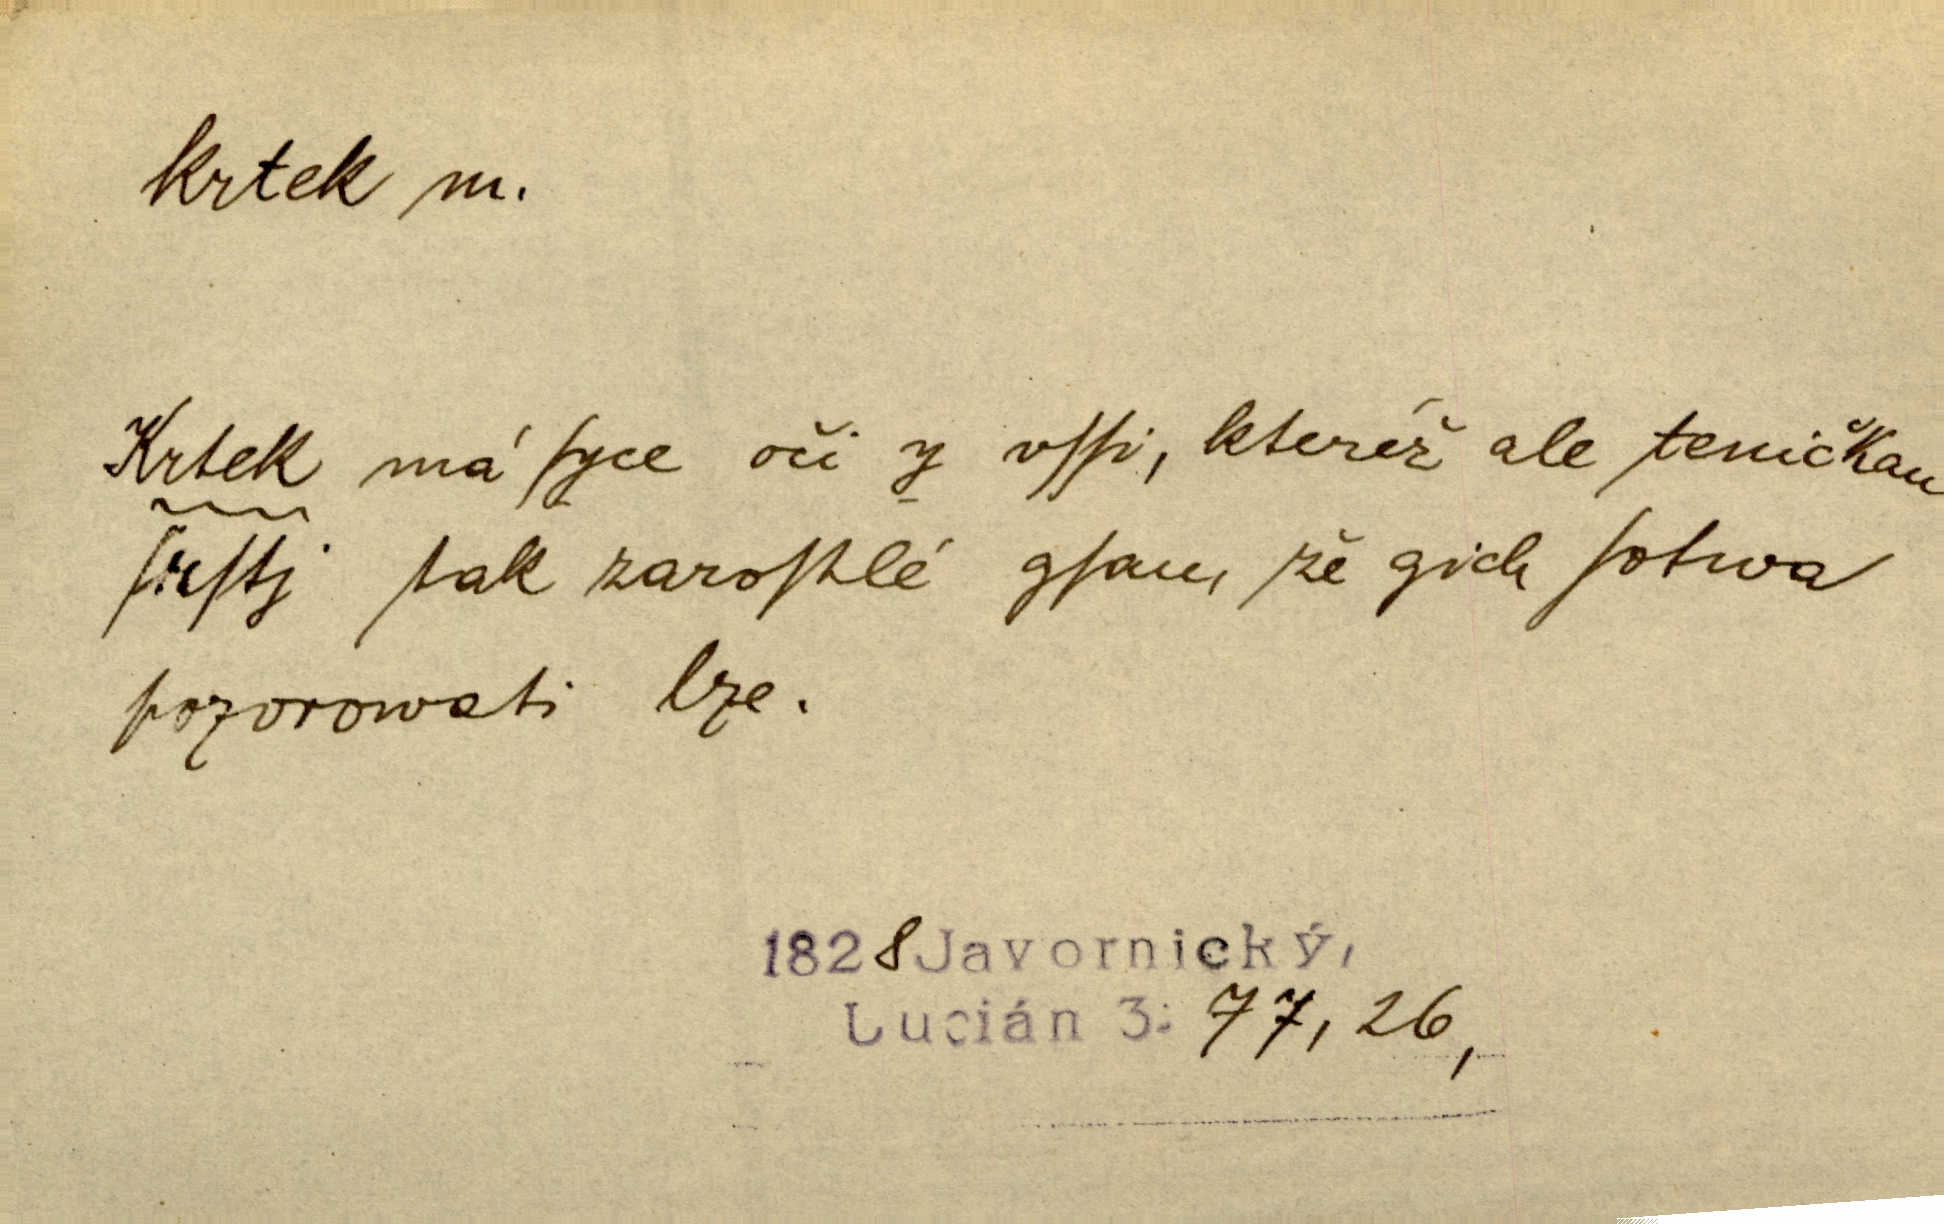 krtek m.
Krtek má ſyce oči y vſſi, kteréž ale teničkau
ſrſtj tak zaroſtlé gſau, že gich ſotwa
pozorowati lze.
1828 Javornický,
Lucián 3: 77, 26,